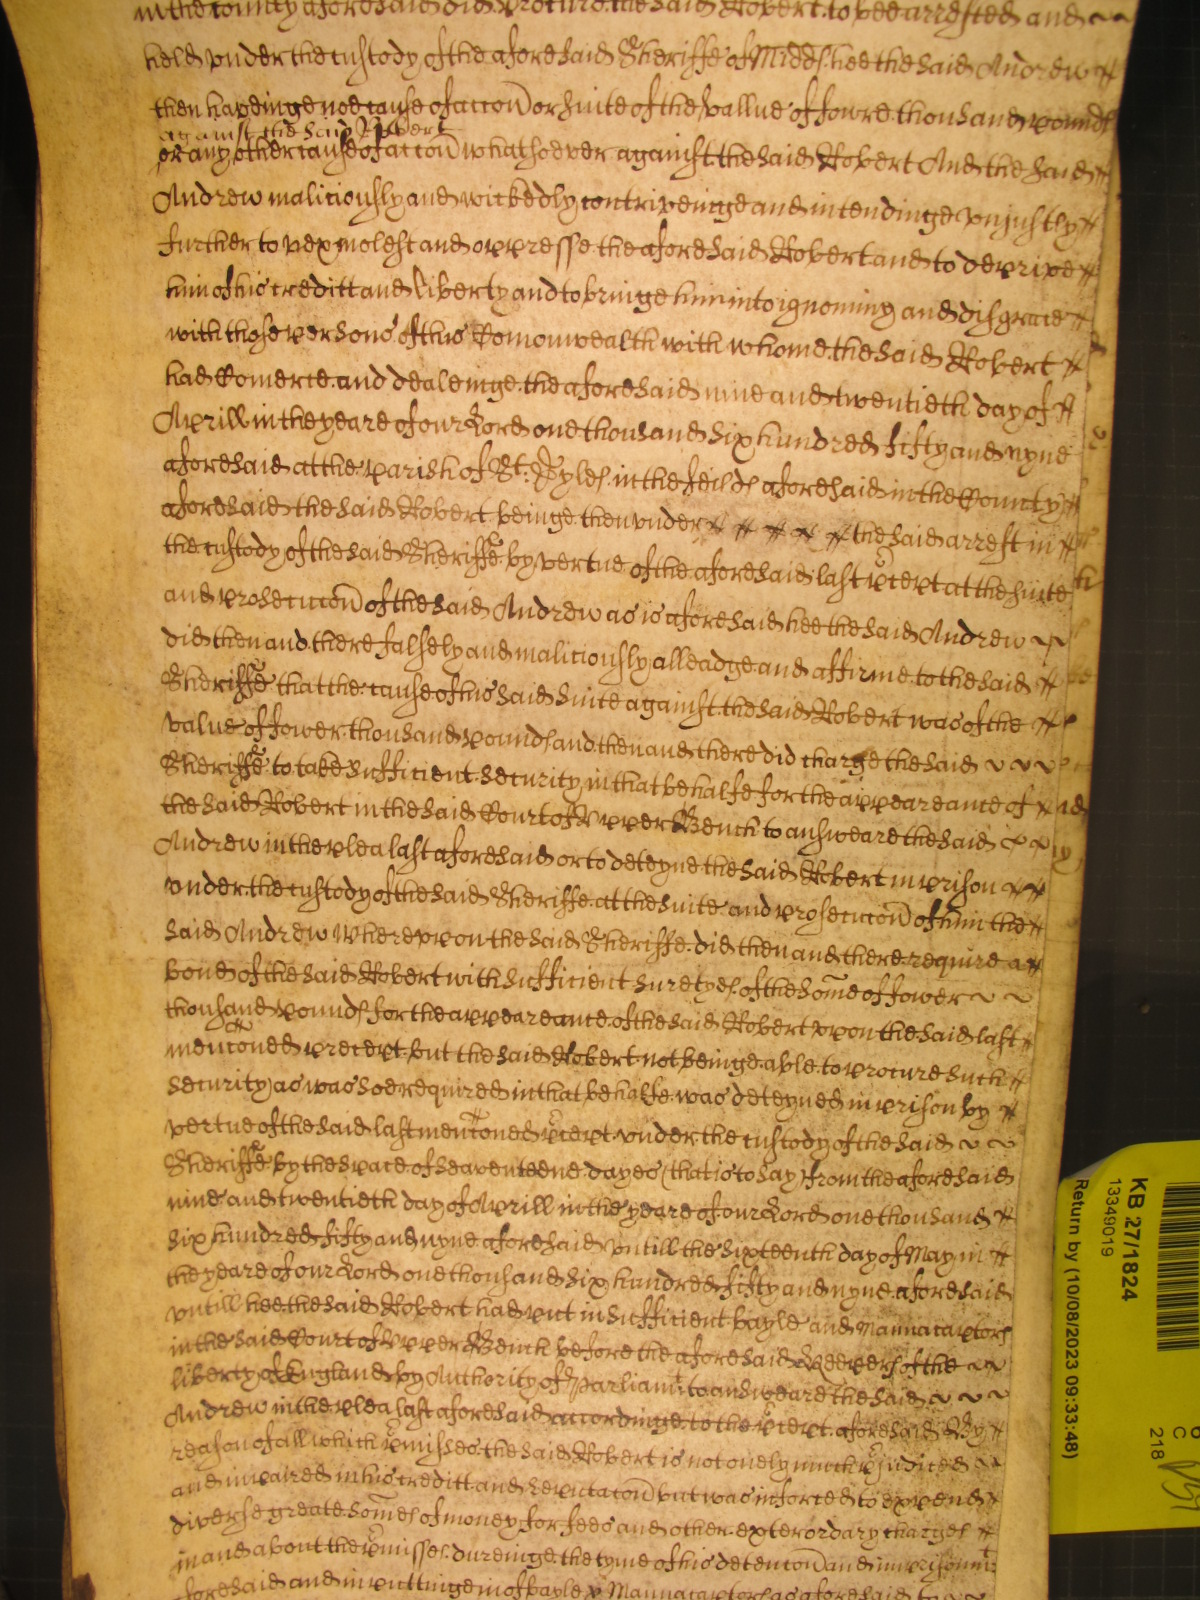 in the County aforesaid did procure the said Robert to bee arrested and
held under the custody of the aforesaid Sheriffe of Midds hee the said Andrew
then haveinge noe cause of accon or suite of the vallue of fowre thousand pounds
against the said Robert
or any other cause of accon whatsoever against the said Robert And the said
Andrew maliciously and wickedly contriveinge and intendinge unjustly
further to vex molest and oppresse the aforesaid Robert and to deprive
him of his creditt and liberty and to bringe him into ignominy and disgrace
with those persons of this Comonwealth with whome the said Robert
had Comerce and dealeinge the aforesaid nine and twentieth day of
Aprill in the yeare of our Lord one thousand six hundred fifty and nyne
aforesaid at the parish of St. Gyles in the feilds aforesaid in the County
aforesaid the said Robert beinge then under the said arrest in
the custody of the said Sheriffe by vertue of the aforesaid last precept at the suite
and prosecucon of the said Andrew as is aforesaid hee the said Andrew
did then and there falsely and maliciously alleadge and affirme to the said
Sheriffe that the cause of his said suite against the said Robert was of the
value of fower thousand pounds and then and there did charge the said
Sheriffe to take sufficient security in that behalfe for the appeareance of
the said Robert in the said Court of Upper Bench to answeare the said
Andrew in the plea last aforesaid or to deteyne the said Robert in prison
under the custody of the said Sheriffe at the suite and prosecucon of him the
said Andrew Whereupon the said Sheriffe did then and there require a
bond of the said Robert with sufficient suretyes of the some of fower
thousand pounds for the appeareance of the said Robert upon the said last
mencioned precept but the said Robert not beinge able to procure such
security as was soe required in that behalfe was deteyned in prison by
vertue of the said last mencioned precept under the custody of the said
Sheriffe by the space of seaventeene dayes (that is to say) from the aforesaid
nine and twentieth day of Aprill in the yeare of our Lord one thousand
six hundred fifty and nyne aforesaid untill the sixteenth day of May in
the yeare of our Lord one thousand six hundred fifty and nyne aforesaid
untill hee the said Robert had put in sufficient bayle and Mannucaptors
in the said Court of Upper Bench before the aforesaid Keepers of the
liberty of England by Authority of Parliamt to answeare the said
Andrew in the plea last aforesaid accordinge to the precept aforesaid By
reason of all which premisses the said Robert is not onely much prejudiced
and impaired in his creditt and reputacon but was inforced to expend
diverse greate somes of money for fees and other exterordary charges
in and about the premisses dureinge the tyme of his detencon and imprisonmt
aforesaid and in puttinge in of bayle Mannucaptors as aforesaid to
KB 27/1824
13349019
Return by (10/08/2023 09:33:48)
C
218